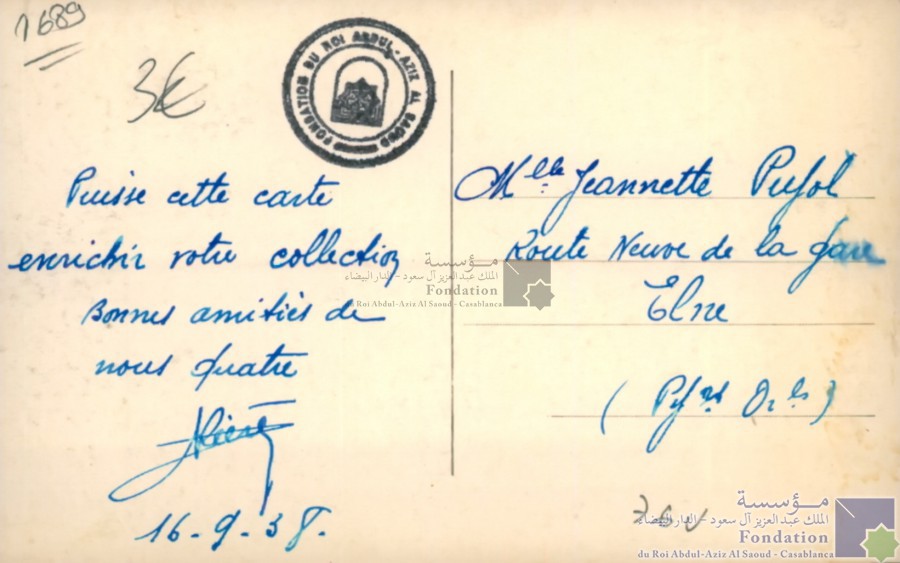 1689
3€
FONDATION DU ROI ABDUL-AZIZ AL SAOUD
Puisse cette carte
enrichir votre collection
Bonnes amitiés de
nous quatre
16-9-38.
Mlle Jeannette Pujol
Route Neuve de la gare
Elne
(Pyrées Orles)
مؤسسة
الملك عبد العزيز آل سعود - الدار البيضاء
Fondation
du Roi Abdul-Aziz Al Saoud - Casablanca
مؤسسة
الملك عبد العزيز آل سعود - الدار البيضاء
Fondation
du Roi Abdul-Aziz Al Saoud - Casablanca